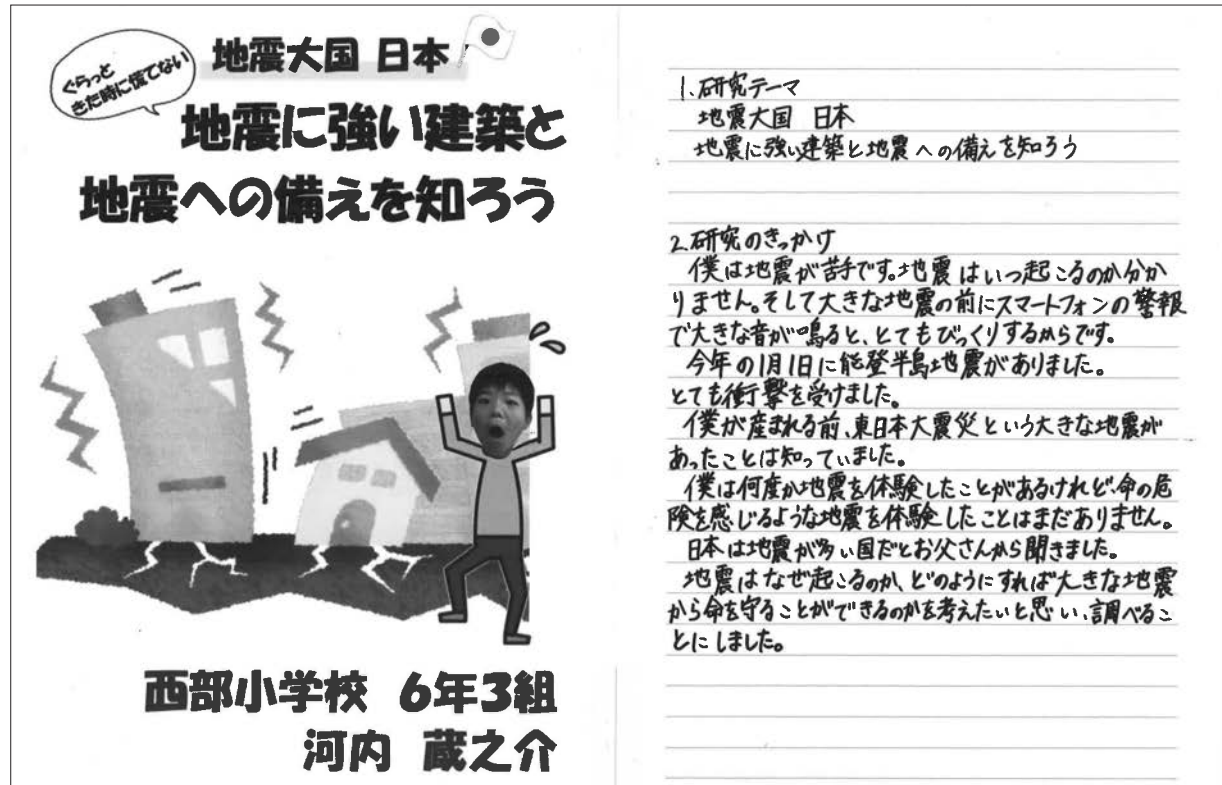 ぐらっと
きた時に慌てない
地震大国 日本
地震に強い建築と
地震への備えを知ろう
西部小学校 6年3組
河内 蔵之介
1.研究テーマ
地震大国 日本
地震に強い建築と地震への備えを知ろう
2.研究のきっかけ
僕は地震が苦手です。地震はいつ起こるのか分か
りません。そして大きな地震の前にスマートフォンの警報
で大きな音が鳴ると、とてもびっくりするからです。
今年の1月1日に能登半島地震がありました。
とても衝撃を受けました。
僕が産まれる前、東日本大震災という大きな地震が
あったことは知っていました。
僕は何度か地震を体験したことがあるけれど、命の危
険を感じるような地震を体験したことはまだありません。
日本は地震が多い国だとお父さんから聞きました。
地震はなぜ起こるのか、どのようにすれば大きな地震
から命を守ることができるのかを考えたいと思い、調べるこ
とにしました。